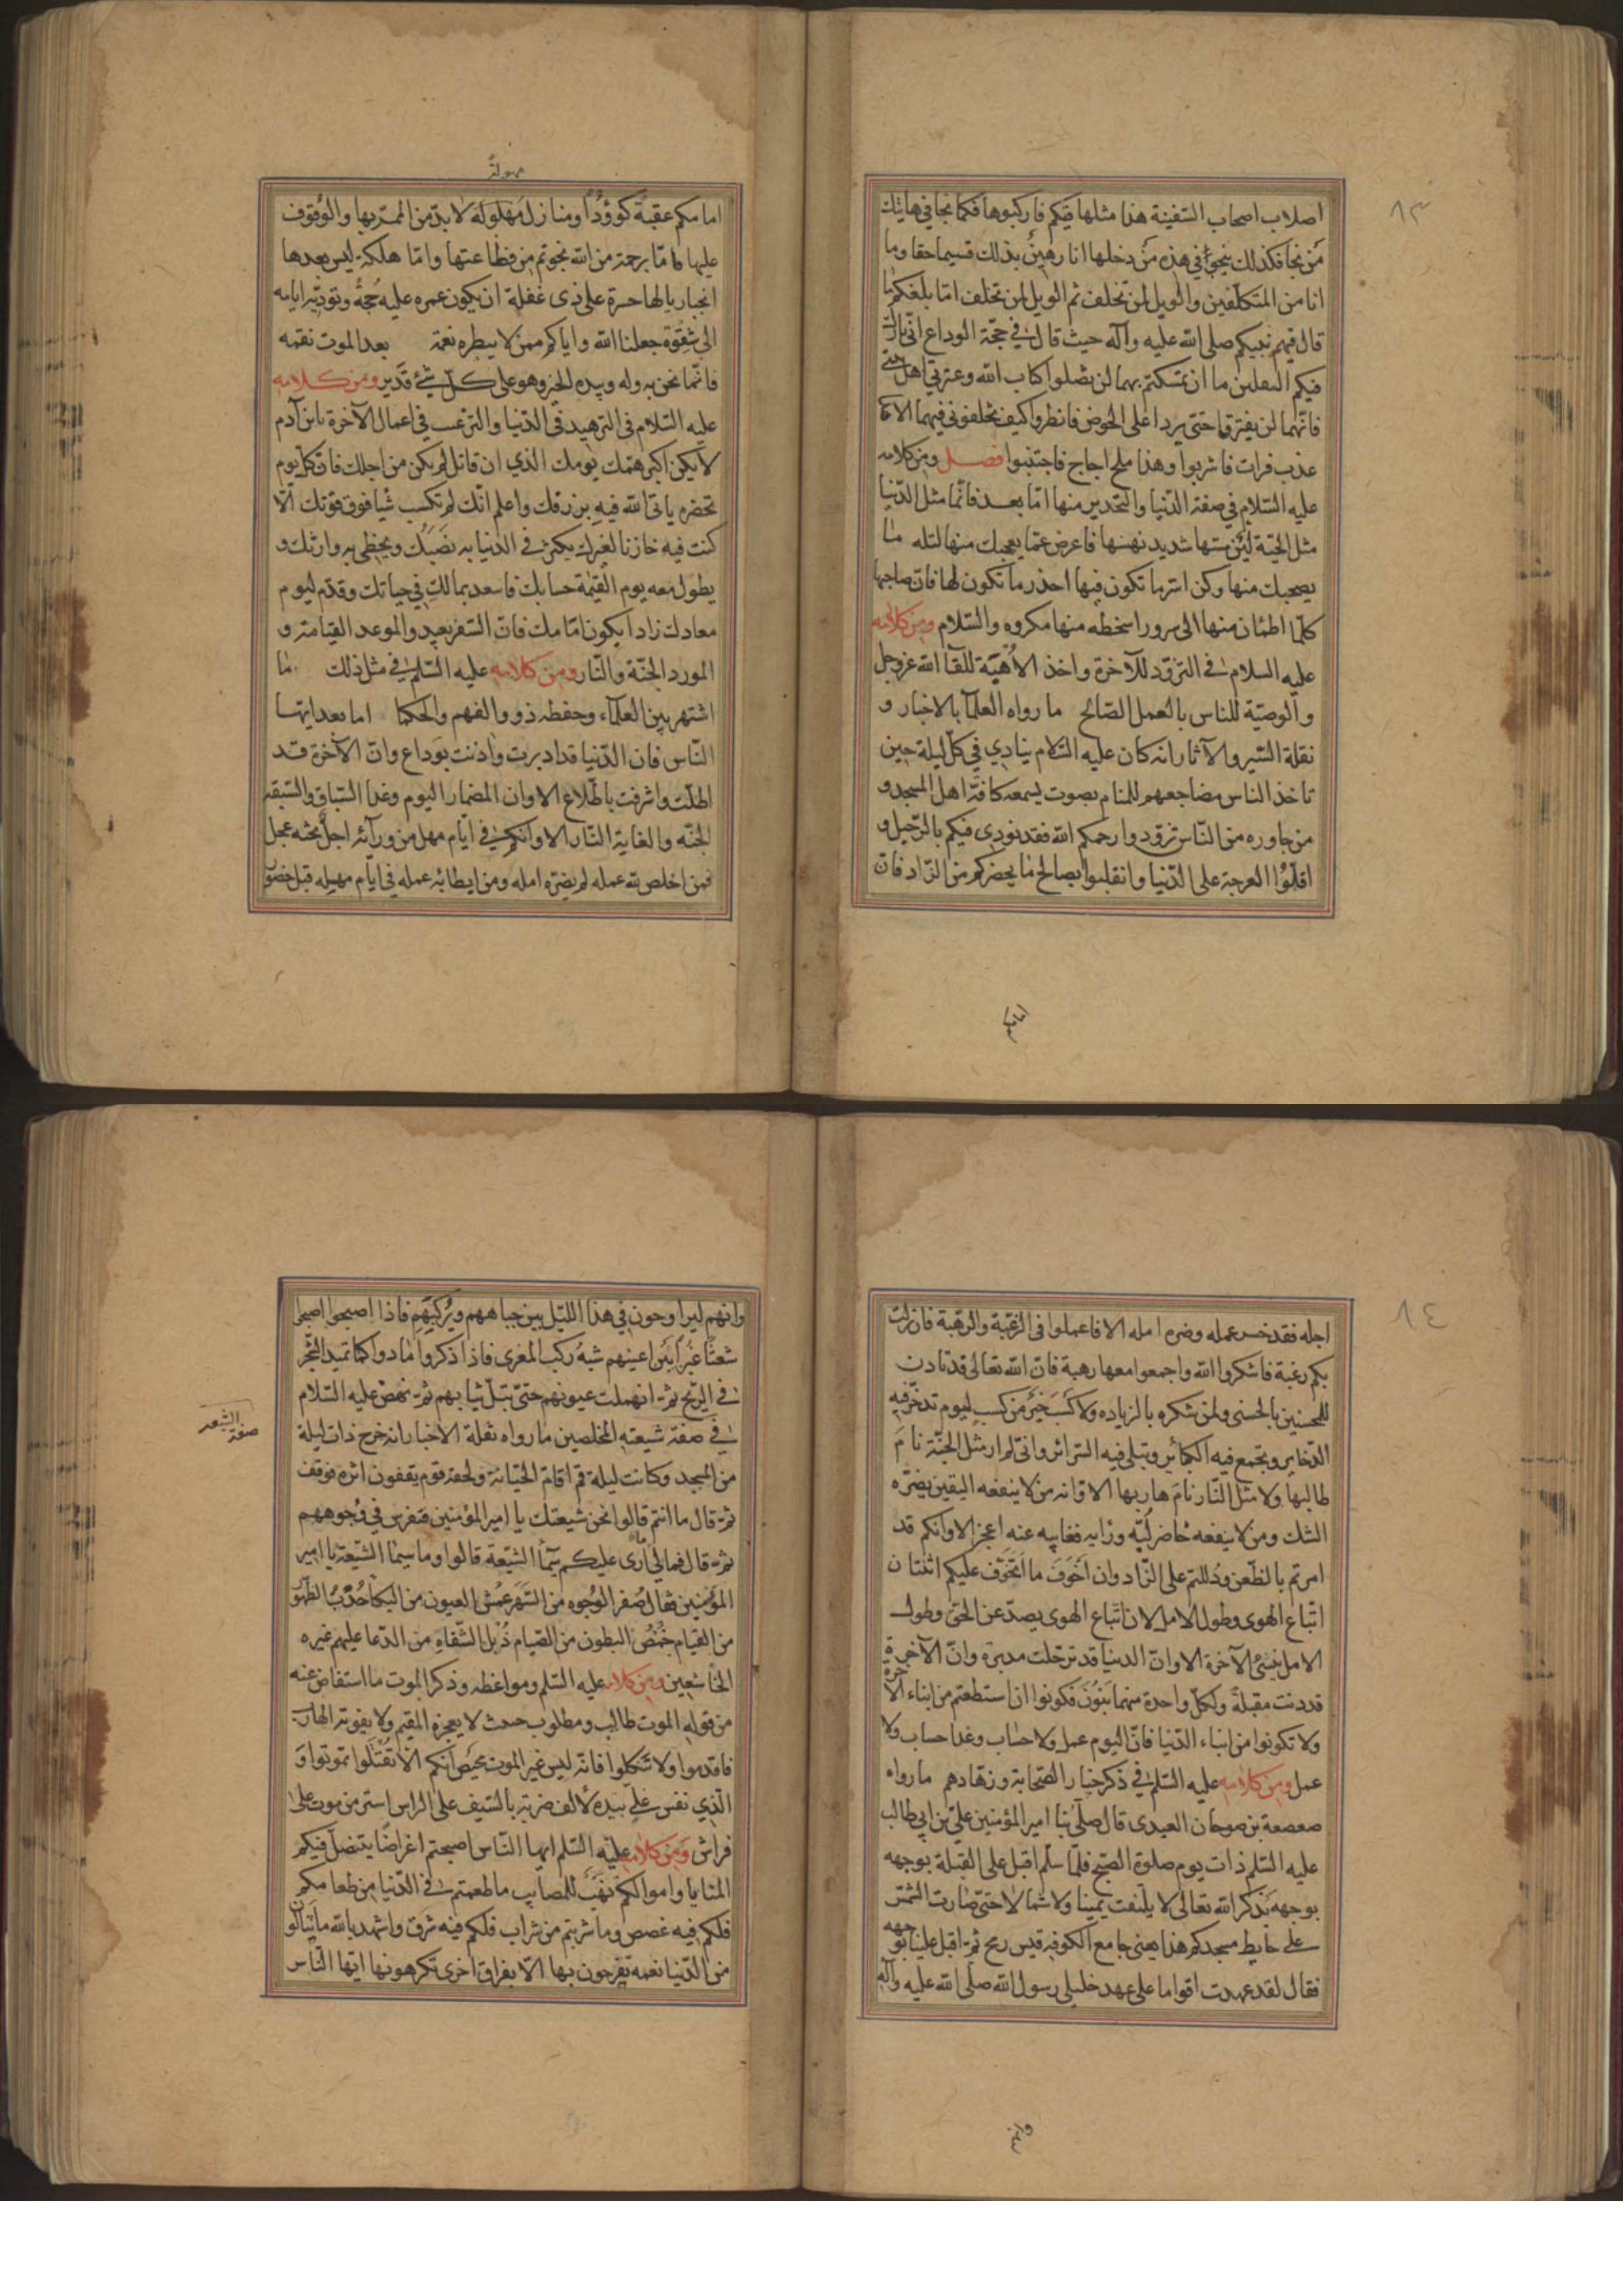 ٨٣
اصلاب اصحاب السفينة هذا مثلها فيكم فاركبوها فكما نجا في هاتيك
من نجا فكذلك ينجو في هذه من دخلها انا رهين بذلك قسما حقا وما
انا من المتكلفين والويل لمن تخلف ثم الويل لمن تخلف اما بلغكم ما
قال فيهم نبيكم صلى الله عليه وآله حيث قال في حجّة الوداع انّي تارك
فيكم الثقلين ما ان تمسكتم بهما لن تضلوا كتاب الله وعترتي اهل بيتي
فانّهما لن يفترقا حتى يردا على الحوض فانظروا كيف تخلفوني فيهما الا هذا
عذب فرات فاشربوا وهذا ملح اجاج فاجتنبوا فصل ومن كلامه
عليه السّلام في صفة الدّنيا والتحذير منها امّا بعد فانّما مثل الدّنيا
مثل الحيّة ليّن مسّها شديد نهسها فاعرض عمّا يعجبك منها لقله ما
يصحبك منها وكن اسرّ ما تكون فيها احذر ما تكون لها فان صاحبها
كلّما اطمئان منها الى سرور اسخطه منها مكروه والسّلام ومن كلامه
عليه السلام في التزوّد للآخرة واخذ الأهبة للقآ الله عزوجل
والوصيّة للناس بالعمل الصّالح ما رواه العلمآ بالاخبار و
نقلة السّير والآثار انه كان عليه السّلام ينادي في كلّ ليلة حين
تاخذ الناس مضاجعهم للمنام بصوت يسمعه كافّة اهل المسجد و
من جاوره من النّاس تزوّدوا رحمكم الله فقد نودى فيكم بالرّحيل و
اقلّوا العرجة على الدّنيا وانقلبوا بصالح ما يحضركم من الزّاد فانّ
امامكم
مهولة
امامكم عقبة كوؤدا ومنازل مهلولة لا بدّ من الممرّ بها والوقوف
عليها فامّا برحمة من الله نجوتم من فظاعتها وامّا هلكة ليس بعدها
انجبار يا لها حسرة على ذى غفلة ان يكون عمره عليه حجّة وتؤدّيه ايامه
الى شقوة جعلنا الله واياكم ممن لا يبطره نعمة بعد الموت نقمه
فانّما نحن به وله وبيده الخير وهو على كلّ شيء قدير ومن كلامه
عليه السّلام في التزهيد في الدّنيا والترغيب في اعمال الآخرة يا بن آدم
لا يكن اكبر همّك يومك الذي ان فاتك لم يكن من اجلك فانّ كلّ يوم
تحضره ياتى الله فيه برزقك واعلم انّك لم تكسب شيا فوق قوتك الّا
كنت فيه خازنا لغيرك يكثر في الدنيا به نصبك ويحظى به وارثك و
يطول معه يوم القيمة حسابك فاسعد بمالك في حياتك وقدّم ليوم
معادك زادا يكون امامك فانّ السّفر بعيد والموعد القيامة و
المورد الجنّة والنّار ومن كلامه عليه السّلم في مثل ذلك ما
اشتهر بين العلمآء وحفظه ذووالفهم والحكما اما بعد ايها
النّاس فان الدّنيا قد ادبرت واذنت بوداع وانّ الآخرة قد
اظلّت واشرفت باطّلاع الا وان المضمار اليوم وغدا السّباق والسّبقة
الجنّه والغاية النّار الا وانكم في ايّام مهل من ورآئه اجل يحثه عجل
فمن اخلص لله عمله لم يضرّه امله ومن ابطا به عمله في ايّام مهله قبل حضور
٨٤
اجله فقد خسر عمله وضره امله الا فاعملوا في الرّغبة والرّهبة فان نزلت
بكم رغبة فاشكروا الله واجمعوا معها رهبة فانّ الله تعالى قد تاذن
للمحسنين بالحسنى ولمن شكره بالزياده ولا كسب خير من كسب ليوم تدّخر فيه
الذّخاير وتجتمع فيه الكبائر وتبلى فيه السّرائر وانّي لم ار مثل الجنّة نام
طالبها ولا مثل النّار نام هاربها الا وانه من لا ينفعه اليقين يضرّه
الشك ومن لا ينفعه حاضر لبّه ورايه فغايبه عنه اعجز الا وانكم قد
امرتم بالظّعن ودللتم على الزّاد وان اخوف ما اتخوّف عليكم اثنتان
اتّباع الهوى وطول الامل لان اتّباع الهوى يصدّ عن الحق وطول
الامل ينسي الآخرة الا وانّ الدنيا قد ترحّلت مدبرة وانّ الآخرة
قد دنت مقبلة ولكلّ واحدة منهما بنون فكونوا ان استطعتم من ابناء الآخرة
ولا تكونوا من ابناء الدّنيا فانّ اليوم عمل ولا حساب وغدا حساب ولا
عمل ومن كلامه عليه السّلم في ذكر خيار الصّحابة وزهادهم ما رواه
صعصعة بن صوحان العبدى قال صلّى بنا امير المؤمنين علىّ بن ابي طالب
عليه السّلم ذات يوم صلوة الصّبح فلمّا سلّم اقبل على القبلة بوجهه
بوجهه يذكر الله تعالى لا يلتفت يمينا ولا شمالا حتى صارت الشمس
على حايط مسجدكم هذا يعنى جامع الكوفه قيس رمح ثمّ اقبل علينا بوجهه
فقال لقد عهدت اقواما على عهد خليلي رسول الله صلّى الله عليه وآله
وانهم
وانهم ليراوحون في هذا اللّيل بين جباههم وركبهم فاذا اصبحوا اصبحوا
شعثا غبرا بين اعينهم شبه ركب المعزى فاذا ذكروا مادوا كما تميد الشّجر
في الرّيح ثمّ انهملت عيونهم حتى تبتلّ ثيابهم ثمّ نهض عليه السّلام
صفة الشيعه
في صفة شيعته المخلصين ما رواه نقلة الاخبار انه خرج ذات ليلة
من المسجد وكانت ليلة قمراً فامّ الجبّانة ولحقه قوم يقفون اثره فوقف
ثمّ قال ما انتم قالوا نحن شيعتك يا امير المؤمنين فتفرس في وجوههم
ثمّ قال فما لي لا ارى عليكم سيمآ الشّيعة قالوا وما سيما الشّيعة يا امير
المؤمنين فقال صفر الوجوه من السّهر عمش العيون من البكآ حدب الظّهور
من القيام خمص البطون من الصّيام ذبل الشفاه من الدّعا عليهم غبره
الخاشعين ومن كلامه عليه السّلم ومواعظه وذكر الموت ما استفاض عنه
من قوله الموت طالب ومطلوب حثيث لا يعجزه المقيم ولا يفوته الهارب
فاقدموا ولا تنكلوا فانّه ليس غير الموت محيص انكم الّا تقتلوا تموتوا و
الّذي نفس على بيده لألف ضربة بالسّيف على الراس ايسر من موت على
فراش ومن كلامه عليه السّلم ايها النّاس اصبحتم اغراضا ينتضل فيكم
المنايا واموالكم نهب للمصايب ما طعمتم في الدّنيا من طعام
فلكم فيه غصص وما شربتم من شراب فلكم فيه شرق واشهد بالله ما تنالون
من الدّنيا نعمه تفرحون بها الّا بفراق اخرى تكرهونها ايّها النّاس